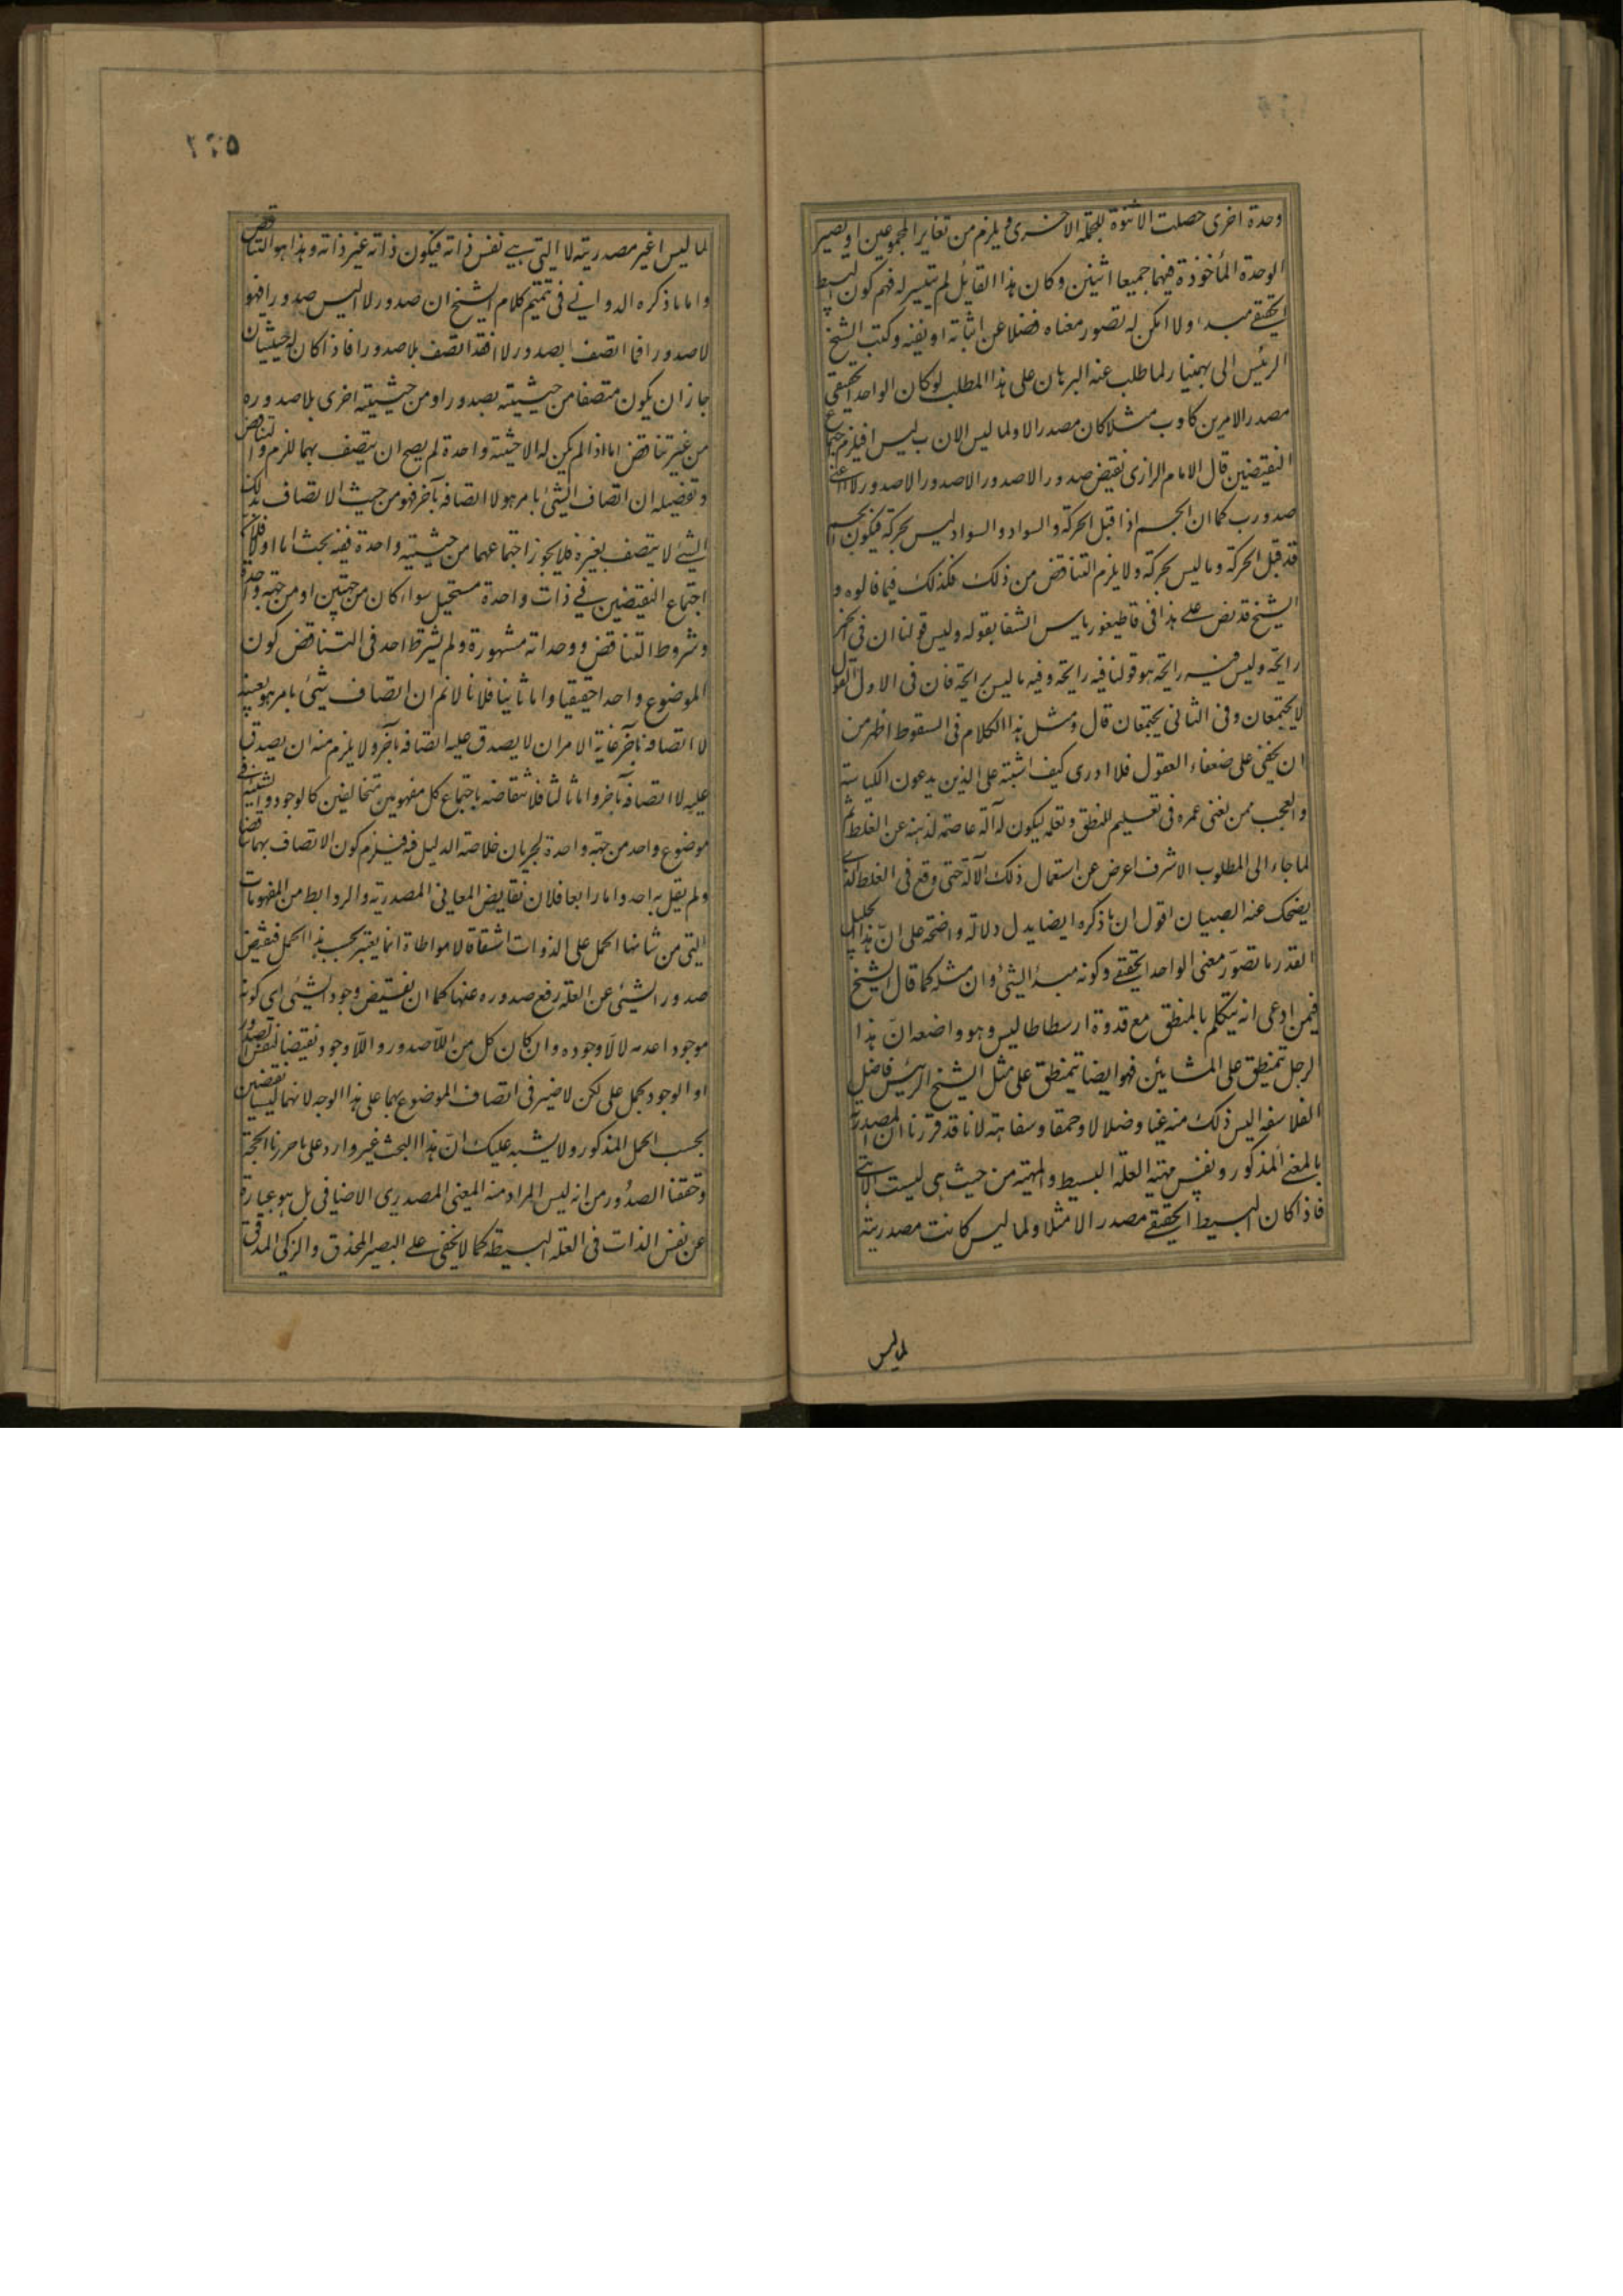 وحدة اخرى حصلت الاثنوة للجملة الاخرى ويلزم من تغاير المجموعين او يصير
الوحدة المأخوذة فيهما جميعا اثنين وكان هذا القائل لم يتيسر له فهم كون البسيط
الحقيقے مبدء ولا امكن له تصور معناه فضلا عن اثباته او نفيه وكتب الشيخ
الرئيس الى بهمنيار لما طلب عنه البرهان على هذا المطلب لو كان الواحد الحقيقى
مصدر الامرين كا وب مثلا كان مصدر الا ولما ليس الان ب ليس ا فيلزم اجتماع
النقيضين قال الامام الرازى نقيض صدور ا لاصدور ا لاصدور لا ا عنى
صدور ب كما ان الجسم اذا قبل الحركة والسواد والسواد ليس بحركة فيكون الجسم
قد قبل الحركة وما ليس بحركة ولا يلزم التناقض من ذلك فكذلك فيما قالوه و
الشيخ قد نص علے هذا فى قاطيغورياس الشفا بقوله وليس قولنا ان فى الخمر
رايحة وليس فيه رايحة هو قولنا فيه رايحة وفيه ما ليس برايحة فان فى الاول القول
لا يجتمعان وفى الثانى يجتمعان قال ومثل هذا الكلام فى السقوط اظهر من
ان يخفى على ضعفاء العقول فلا ادرى كيف اشتبه على الذين يدعون الكياسة
والعجب ممن يفنى عمره فى تعليم المنطق وتعلمه ليكون له آلة عاصمة لذهنه عن الغلط ثم
لما جاء الى المطلوب الاشرف اعرض عن استعمال ذلك الآلة حتى وقع فى الغلط الذے
يضحك عنه الصبيان اقول ان ما ذكره ايضا يدل دلالة واضحة على انّ هذا الجليل
القدر ما تصوّر معنى الواحد الحقيقے وكونه مبدأ لشئ وان مثله كما قال الشيخ
فيمن ادعى انه يتكلم بالمنطق مع قدوة ارسطاطاليس وهو واضعه انّ هذا
الرجل يتمنطق على المشائين فهو ايضا يتمنطق على مثل الشيخ الرئيس فاضل
الفلاسفه اليس ذلك منه غيا وضلالا وحمقا وسفاهة لانا قد قررنا ان المصدرية
بالمعنے المذكور ونفس مهية العلة البسيط والمهية من حيث هى ليست الا هے
فاذا كان البسيط الحقيقے مصدر الا مثلا ولما ليس كانت مصدريته
لما ليس
لما ليس ا غير مصدريته لا التى هے نفس ذاته فيكون ذاته غير ذاته وهذا هو التناقض
واما ما ذكره الدوانے فى تتميم كلام الشيخ ان صدور لا ا ليس صدور ا فهو
لاصدور ا فما اتصف بصدور لا ا فقد اتصف بلا صدور ا فاذا كان له حيثيتان
جاز ان يكون متصفا من حيثيته بصدور ا ومن حيثيته اخرى بلا صدوره
من غير تناقض اما اذا لم يكن له الا حيثية واحدة لم يصح ان يتصف بهما للزم التناقض
وتفصيله ان اتصاف الشئ بامر هو لا اتصافه بآخر فهو من حيث الاتصاف بذلك
الشے لا يتصف بغيره فلا يجوز اجتماعهما من حيثيته واحدة ففيه بحث اما اولا فلان
اجتماع النقيضين فے ذات واحدة مستحيل سواء كان من جهتين او من جهة واحدة
وشروط التناقض ووحداته مشهورة ولم يشترط احد فى التناقض كون
الموضوع واحدا حقيقيا واما ثانيا فلانا لا نم ان اتصاف شئ بامر هو بعينه
لا اتصافه بآخر غاية الامر ان لا يصدق عليه اتصافه بآخر ولا يلزم منه ان يصدق
عليه لا اتصافه بآخر واما ثالثا فلانتقاضه باجتماع كل مفهومين متخالفين كالوجود والشيئية فے
موضوع واحد من جهة واحدة لجريان خلاصة الدليل فيه فيلزم كون الاتصاف بهما تناقضا
ولم يقل به احد واما رابعا فلان نقايض المعانى المصدرية والروابط من المفهومات
التى من شانها الحمل على الذوات اشتقاقا لا مواطاة انما يعتبر بحسب هذا الحمل فنقيض
صدور الشئ عن العلة رفع صدوره عنها كما ان نقيض وجود الشئ اى كونه
موجودا عدمه لا لّاوجوده وان كان كل من اللّاصدور واللّاوجود نقيضا لنفس الصدور
او الوجود بحمل على لكن لا ضير فى اتصاف الموضوع بهما على هذا الوجه لانهما ليسا نقيضين
بحسب الحمل المذكور ولا يشتبه عليك انّ هذا البحث غير وارد على ما حررنا الحجة
وحققنا الصدور من انه ليس المراد منه المعنى المصدرى الاضافى بل هو عبارة
عن نفس الذات فى العلة البسيطة كما لا يخفى علے البصير المحذق والزكى المدقق